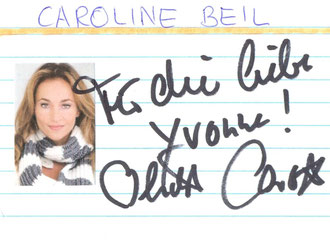 CAROLINE BEIL
Für die liebe
Yvonne!